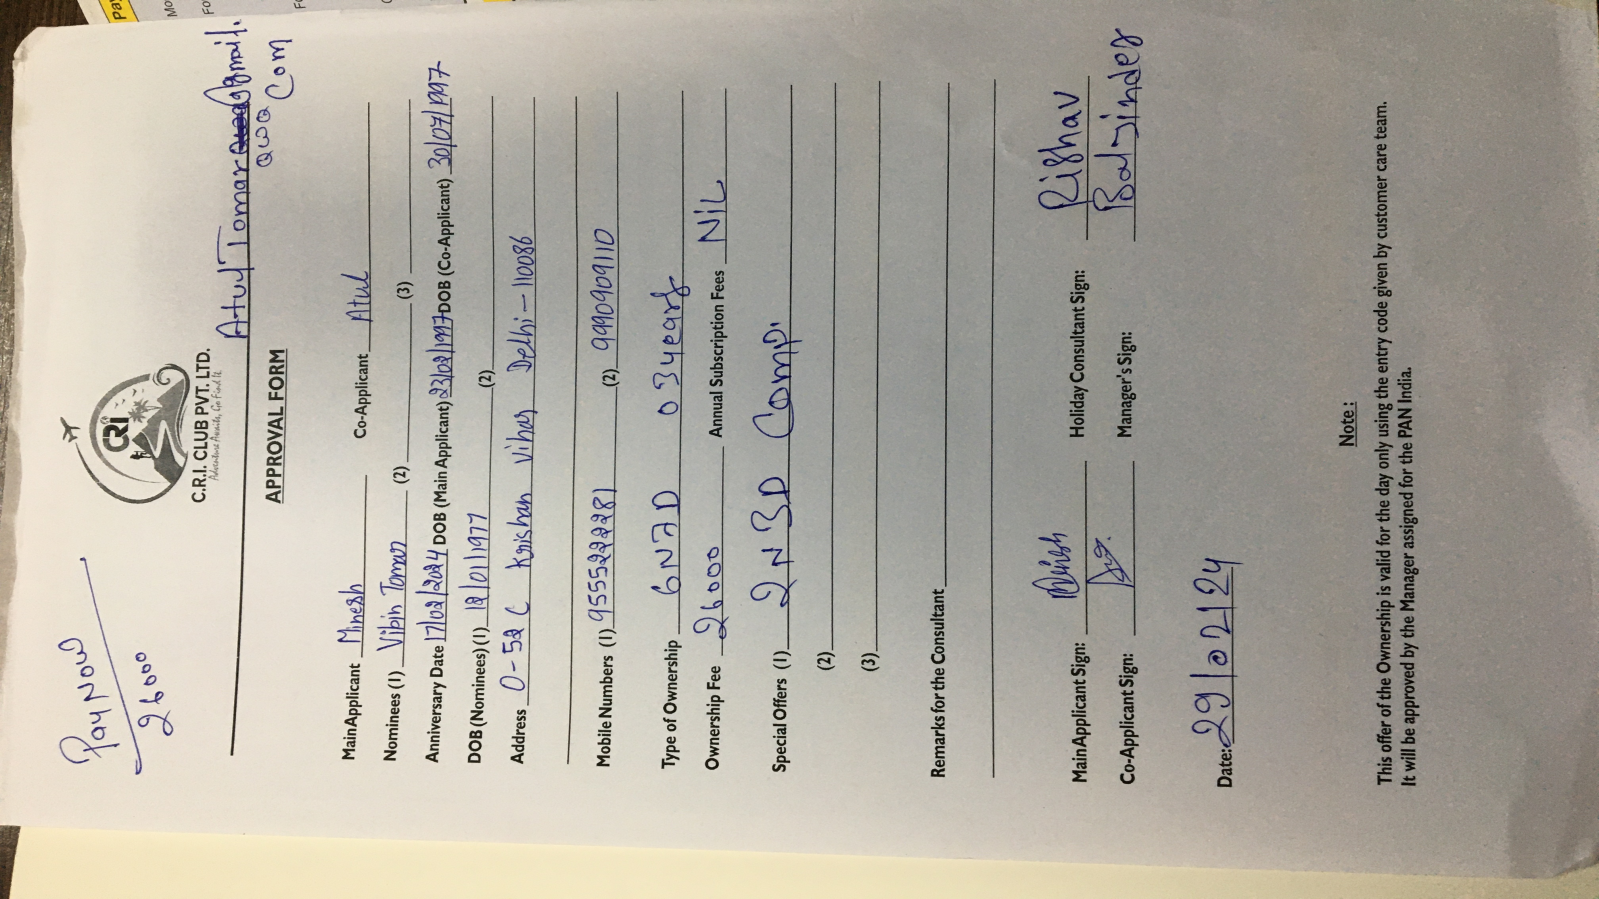 Pay Now
26000
CRI
C.R.I. CLUB PVT. LTD.
Adventure Awaits, Go Find It.
Atul Tomar @gmail.
Com
APPROVAL FORM
Main Applicant Minesh Co-Applicant Atul
Nominees (1) Vibin Tomar (2) (3)
Anniversary Date 17/02/2024 DOB (Main Applicant) 23/02/1997 DOB (Co-Applicant) 30/07/1997
DOB (Nominees) (1) 12/01/1977 (2)
Address O-52 C Krishan Vihar Delhi-110086
Mobile Numbers (1) 9555222281 (2) 9990909110
Type of Ownership 6N7D 03 years
Ownership Fee 26000 Annual Subscription Fees NIL
Special Offers (1) 2N3D Comp.
(2)
(3)
Remarks for the Consultant
Main Applicant Sign: Minesh Holiday Consultant Sign: Rishav
Co-Applicant Sign: Manager's Sign: Baljinder
Date: 29/02/24
Note :
This offer of the Ownership is valid for the day only using the entry code given by customer care team.
It will be approved by the Manager assigned for the PAN India.